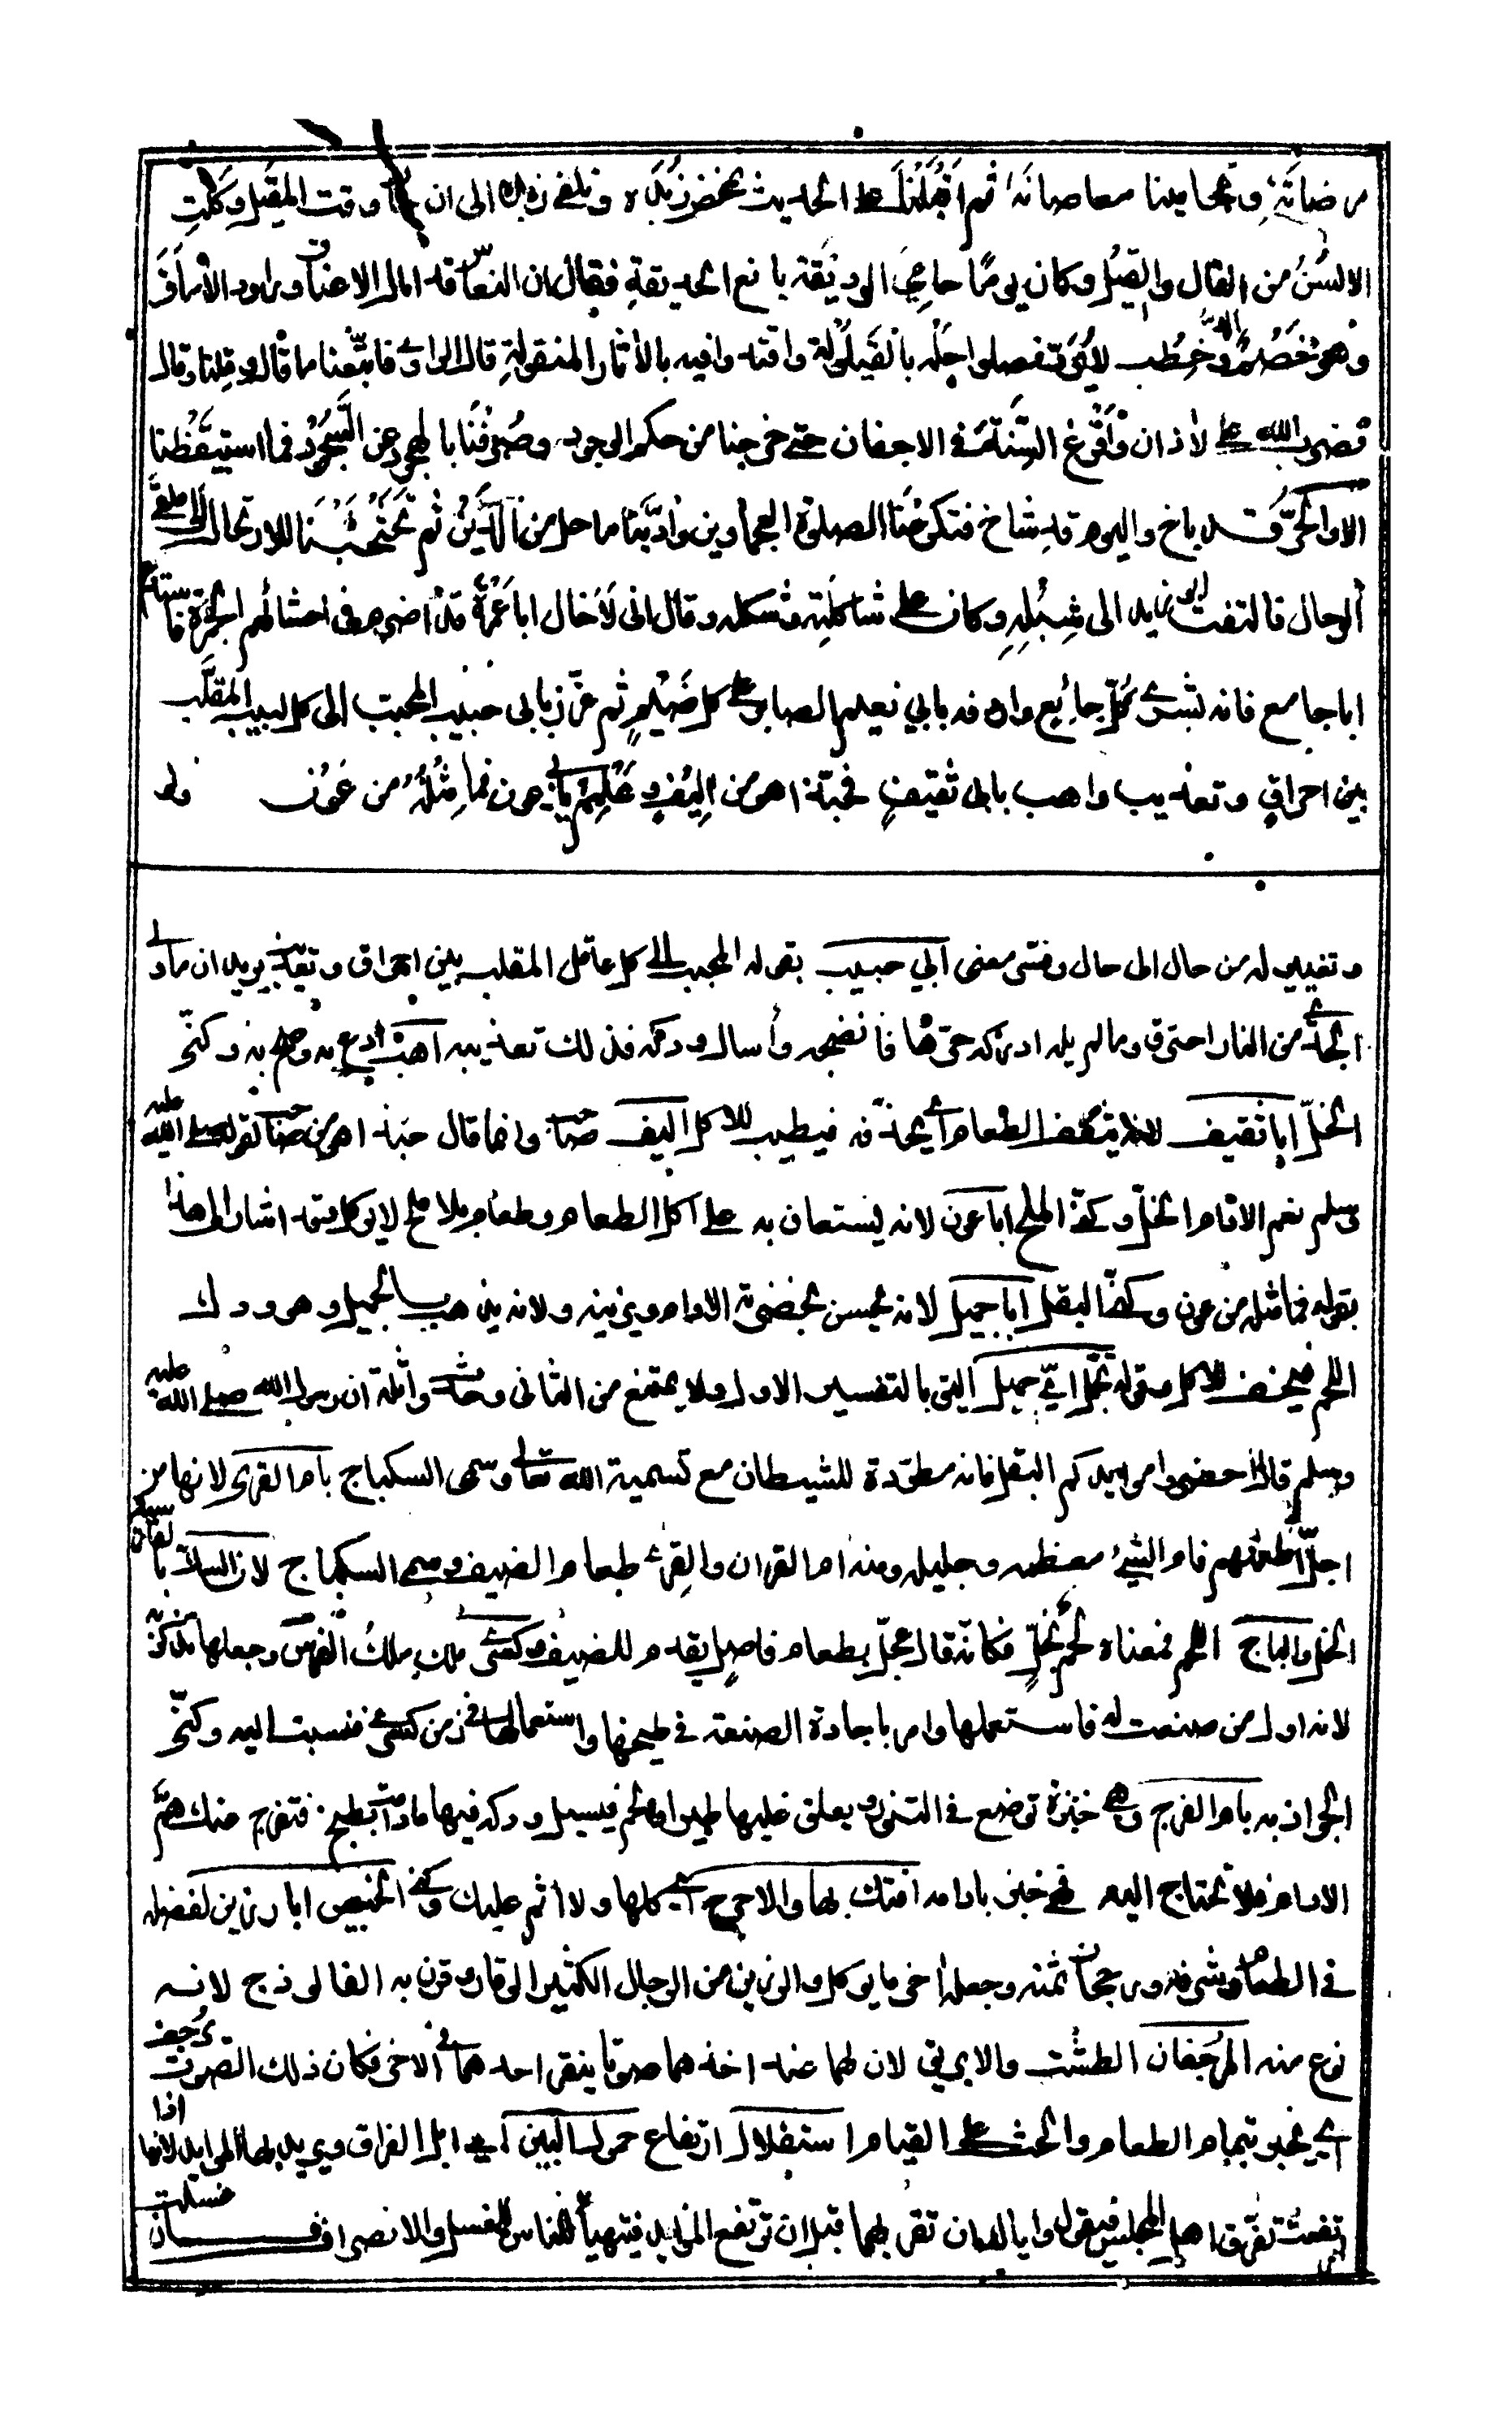 مرضاته وتحامينا معاصاته ثم اقبلنا على الحديث نمخض زبده ونلغى زبده الى ان حان وقت المقيل وكلت
الالسن من القال والقيل وكان يوما حامى الوديقة يانع الحديقة فقال ان النعاس قد امال الاعناق وراود الآماق
وهو خصم الد وخطب لا يرد فصلوا حبله بالقيلولة واقتدوا فيه بالآثار المنقولة قال الراوي فاتبعنا ما قال وقلنا وقال
فضرب الله على الاذان وافرغ السنة فى الاجفان حتى خرجنا من حكم الوجود وصرفنا بالهجود عن السجود فما استيقظنا
الا والحر قد باخ واليوم قد شاخ فتكرعنا لصلوة العجماوين وادينا ما حل من الدين ثم تحثحثنا للارتحال الى ملقى
الرحال فالتفت ابو زيد الى شبله وكان على شاكلته وشكله وقال انى لاخال ابا عمرة قد اضرم فى احشائهم الجمرة فاستدع
ابا جامع فانه بشرى كل جائع واردفه بابي نعيم الصابر على كل ضيم ثم عزز بابى حبيب المحبب الى كل لبيب المقلب
بين احراق وتعذيب واهب بابى ثقيف فحبذا هو من اليف وهلم بابى عون فما مثله من عون ولو
وتغييره من حال الى حال وفسر معنى ابي حبيب بقوله المحبب الى كل عاقل المقلب بين احراق وتعذيب يريد ان ما ولى
الجدى من النار احترق وما لم يله ادركه حرها فانضجه وأسال ودكه فذلك تعذيبه اهب ادع به وصح به وكنى
الخل ابا ثقيف لانه يثقف الطعام اي يحذقه فيطيب للاكل اليف صاحب وانما قال حبذا هو من صاحب لقوله صلى الله عليه
وسلم نعم الادام الخل وكنى الملح ابا عون لانه يستعان به على اكل الطعام وطعام بلا ملح لا يوكل وقد اشار الى هذا
بقوله فما مثله من عون وكنى البقل ابا جميل لانه يحسن بخضرته الادام ويزينه ولانه يذهب بالجميل وهو ودك
اللحم فيخف للاكل وقوله بجمل اي جميل اليق بالتفسير الاول ولا يمتنع من الثانى وحدث واثلة ان رسول الله صلى الله عليه
وسلم قال احضروا موايدكم البقل فانه مطردة للشيطان مع تسمية الله تعالى وسمى السكباج بام القرى لانها من
اجل اطعمتهم فام الشيء معظمه وجليله ومنه ام القران والقرى طعام الضيف وسمى السكباج لان السك بالفارسية
الخل والباج اللحم فمعناه لحم بخل فكانه قال عجل بطعام فاصل يقدم للضيف وكسرى ملك ملك الفرس وجعلها مذكرة به
لانه اول من صنعت له فاستعملها وامر باجادة الصنعة فى طبخها واستعمالها فى زمن كسرى فنسبت اليه وكنى
الجواذبه بام الفرج وهى خبزة توضع فى التنور ويعلق عليها طير او لحم فيسيل ودكه فيها ما دامت تطبخ فتفرج عنك هم
الادام فلا تحتاج اليه فهى خبز بادامه افتك بها ولا حرج اى كلها ولا اثم عليك وكنى الخبيص ابا رزين لفضله
فى الطعام وشرفه ورجحان ثمنه وجعله اخر ما يوكل والرزين من الرجال الكثير الوقار وقرن به الفالوذج لانه
نوع منه المرجفان الطشت والابريق لان لهما عند اخذهما صوتا ينقر احدهما فى الاخر فكان ذلك الصوت يرجف
اي يخبر بتمام الطعام والحث على القيام استقلال ارتفاع حمول البين اى ابل الفراق ويريد بها الموايد لانها اذا
ارتفعت تفرق اهل المجلس فيقول وايا والدان تقربهما قبل ان ترتفع الموايد فيتهيأ الناس للغسل والانصراف فـان غسلت